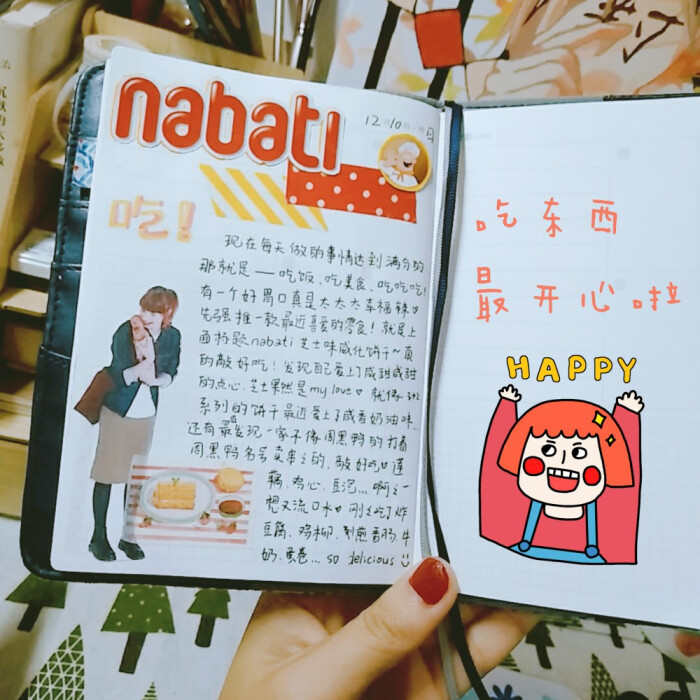 nabati
12月10日/周日
吃！
现在每天做的事情达到满分的
那就是——吃饭、吃美食、吃吃吃！
有一个好胃口真是太太太幸福辣♡
先强推一款最近喜爱的零食！就是上
面标题nabati芝士味威化饼干~真
的敲好吃！发现自己爱上了咸甜咸甜
的点心，芝士果然是my love♡就像
系列的饼干最近爱上了咸香奶油味，
还有最发现一家不像周黑鸭的打着
周黑鸭名号卖串的，敲好吃♡莲
藕、鸡心、豆泡...啊
想又流口水♡刚吃了炸
豆腐、鸡柳、煎香肠、牛
奶、蛋卷... so delicious
吃东西
最开心啦
HAPPY